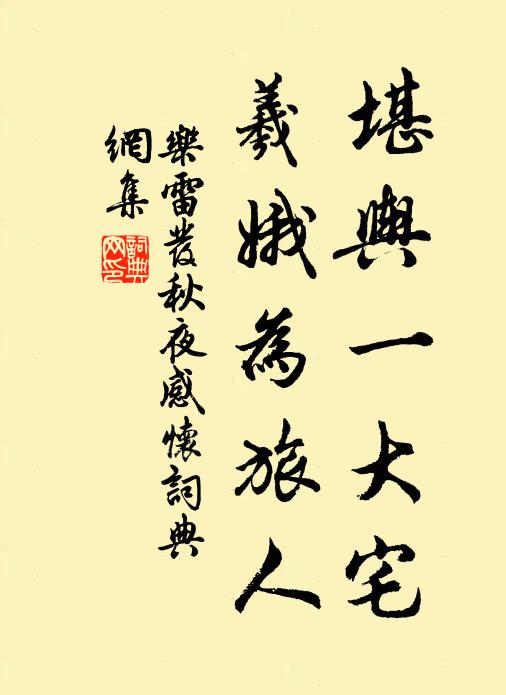 堪輿一大宅
羲娥為旅人
樂雷發秋夜感懷詞典
網集
詞典網印